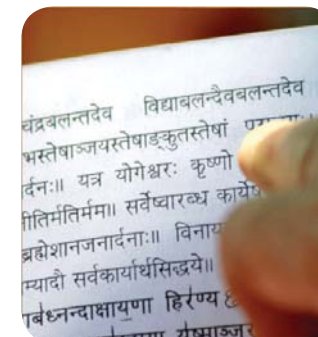 चंद्रबलन्तदेव विद्याबलन्दैवबलन्तदेव
भस्तेषाञ्जयस्तेषाङ्कुतस्तेषां
र्दनः॥ यत्र योगेश्वरः कृष्णो
नीतिर्मतिर्मम॥ सर्वेष्वारब्ध कार्येष
ब्रह्मेशानजनार्दनाः॥ विनाय
म्यादौ सर्वकार्यार्थसिद्धये॥
गबध्नन्दाक्षायणा हिरण्य